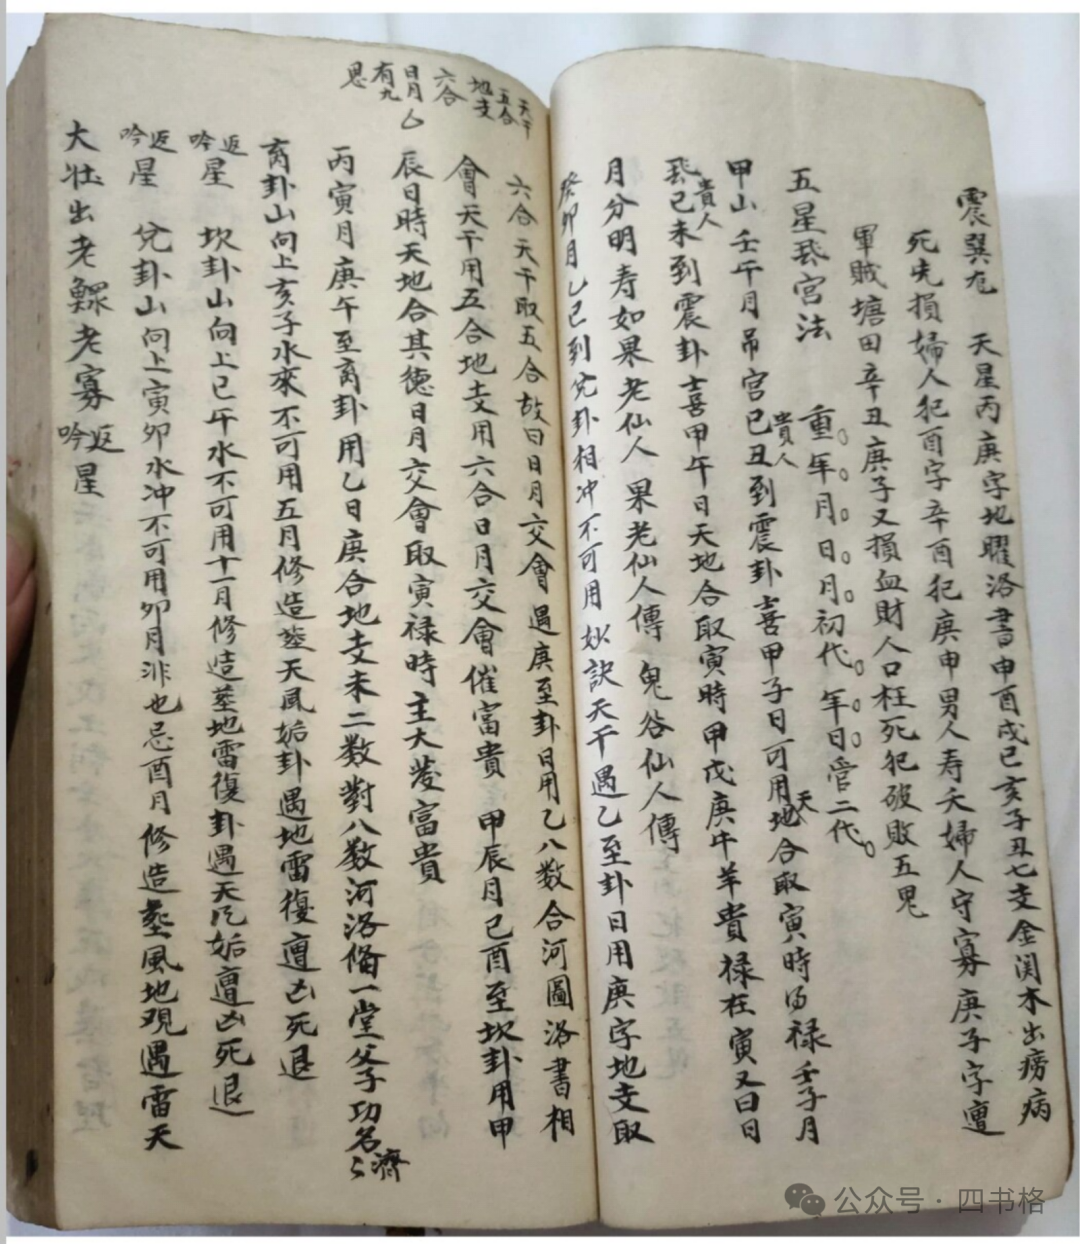 震巽九　天星丙庚字地曜洛書申酉戌巳亥子丑七支金関木出痨病
死先損婦人犯酉字辛酉犯庚申男人寿夭婦人守寡庚子字遭
軍賊塘田辛丑庚子又損血財人口枉死犯破敗五鬼
五星飛宫法　重年月日月初代年日管二代
甲山　壬午月吊宫巳丑到震卦喜甲子日可用地天合取寅時禄壬子月
貴人
飛己未到震卦喜甲午日天地合取寅時甲戊庚牛羊貴禄在寅又曰日
貴人
月分明寿如果老仙人　果老仙人傳　鬼谷仙人傳
癸卯月乙巳到兌卦相冲不可用　妙訣天干遇乙至卦日用庚字地支取
六合天干取五合故曰日月交會遇庚至卦日用乙八数合河圖洛書相
天干五合地支六合日月有九
會天干用五合地支用六合日月交會催富貴　甲辰月己酉至坎卦用甲
辰日時天地合其德日月交會取寅禄時主大發富貴
丙寅月庚午至离卦用乙日庚合地支未二数對八数河洛偹一堂父子功名濟
离卦山向上亥子水來不可用五月修造塟天風姤卦遇地雷復遭凶死退
返吟星　坎卦山向上巳午水不可用十一月修造塟地雷復卦遇天風姤遭凶死退
返吟星　兌卦山向上寅卯水冲不可用卯月非也忌酉月修造塟風地观遇雷天
大壮出老鰥老寡返吟星